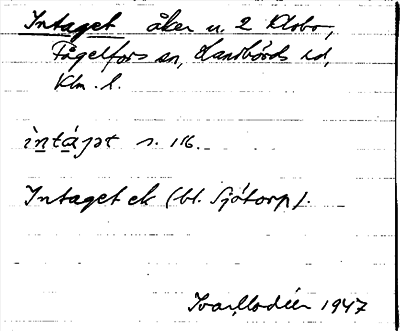 Intaget åker u. 2 Klobo,
Fågelfors sn, Handbörds hd,
Klm. l.
ìntáɡət n. 116.
Intaget ek (bl. Sjötorp).
Ivar Modéer 1947